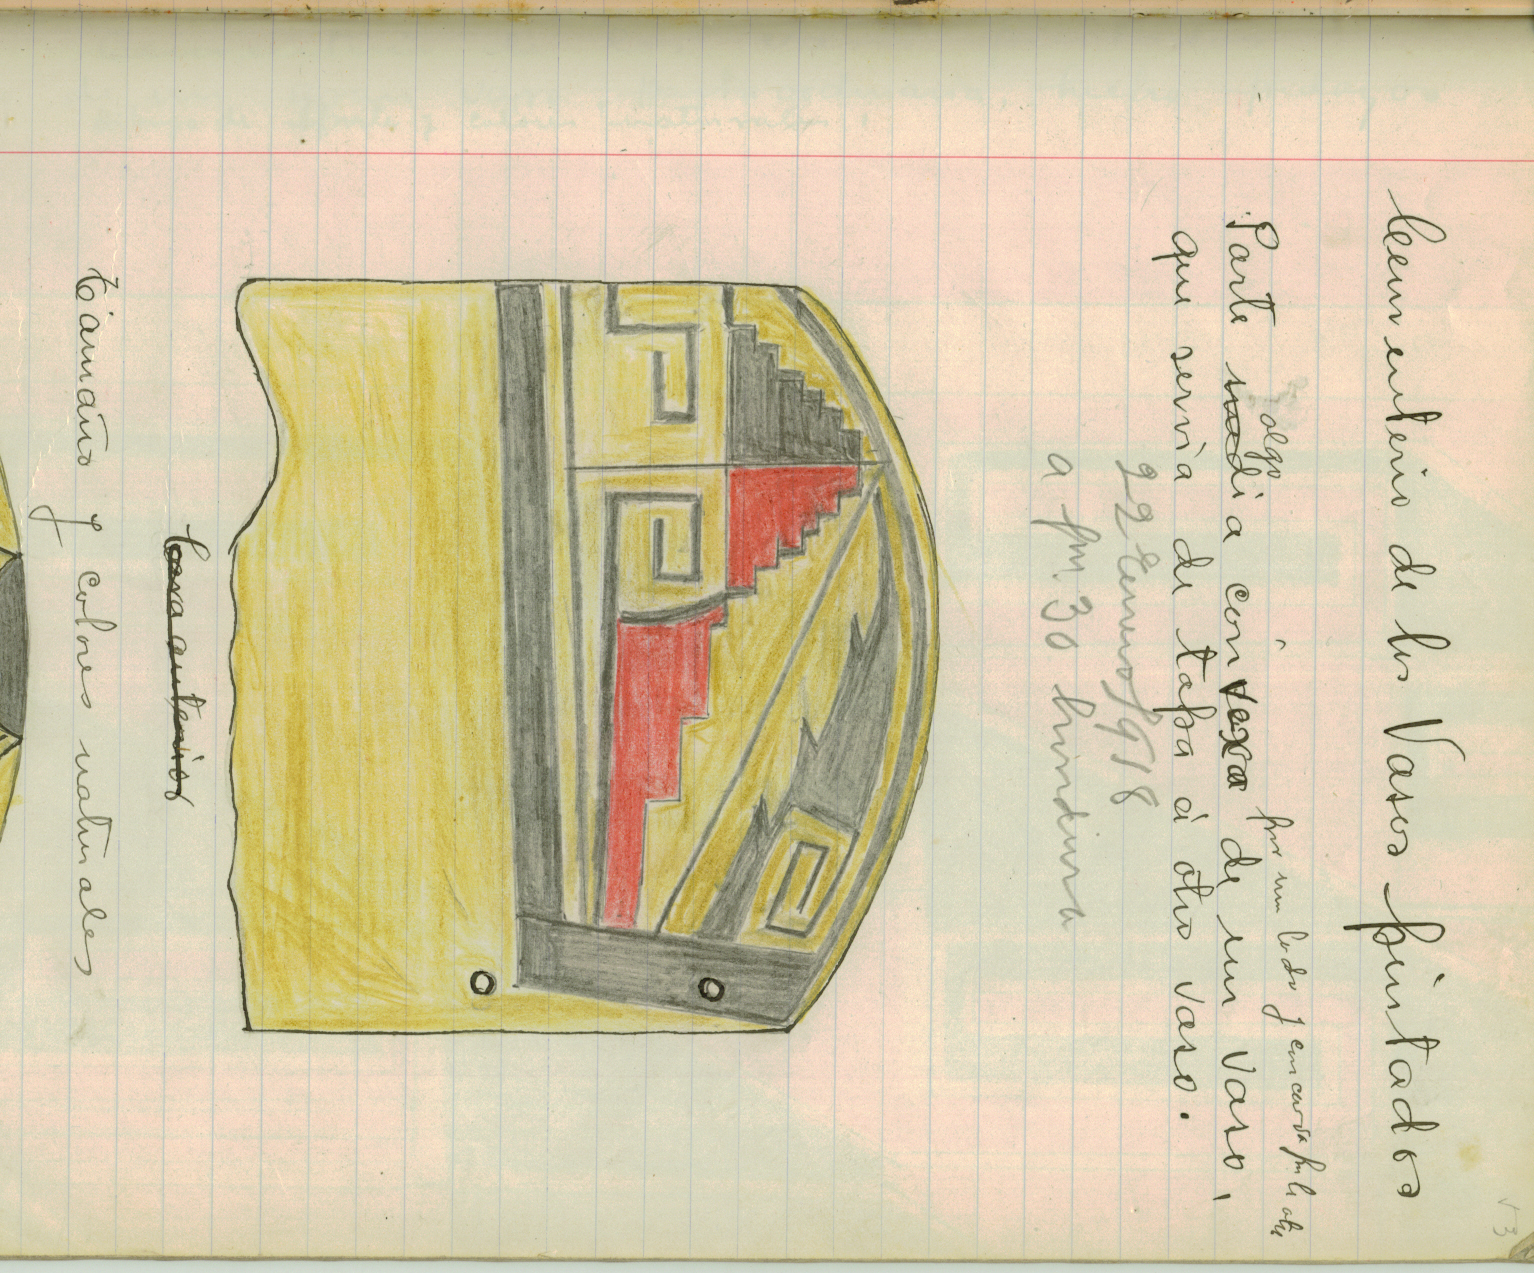 Cementerio de los Vasos pintados
algo por un lado y concava por la otra
Parte media convexa de un vaso,
que servia de tapa á otro vaso.
22 Enero/918
a pm. 30 hundura
Cara anterior
Tamaño y colores naturales
53